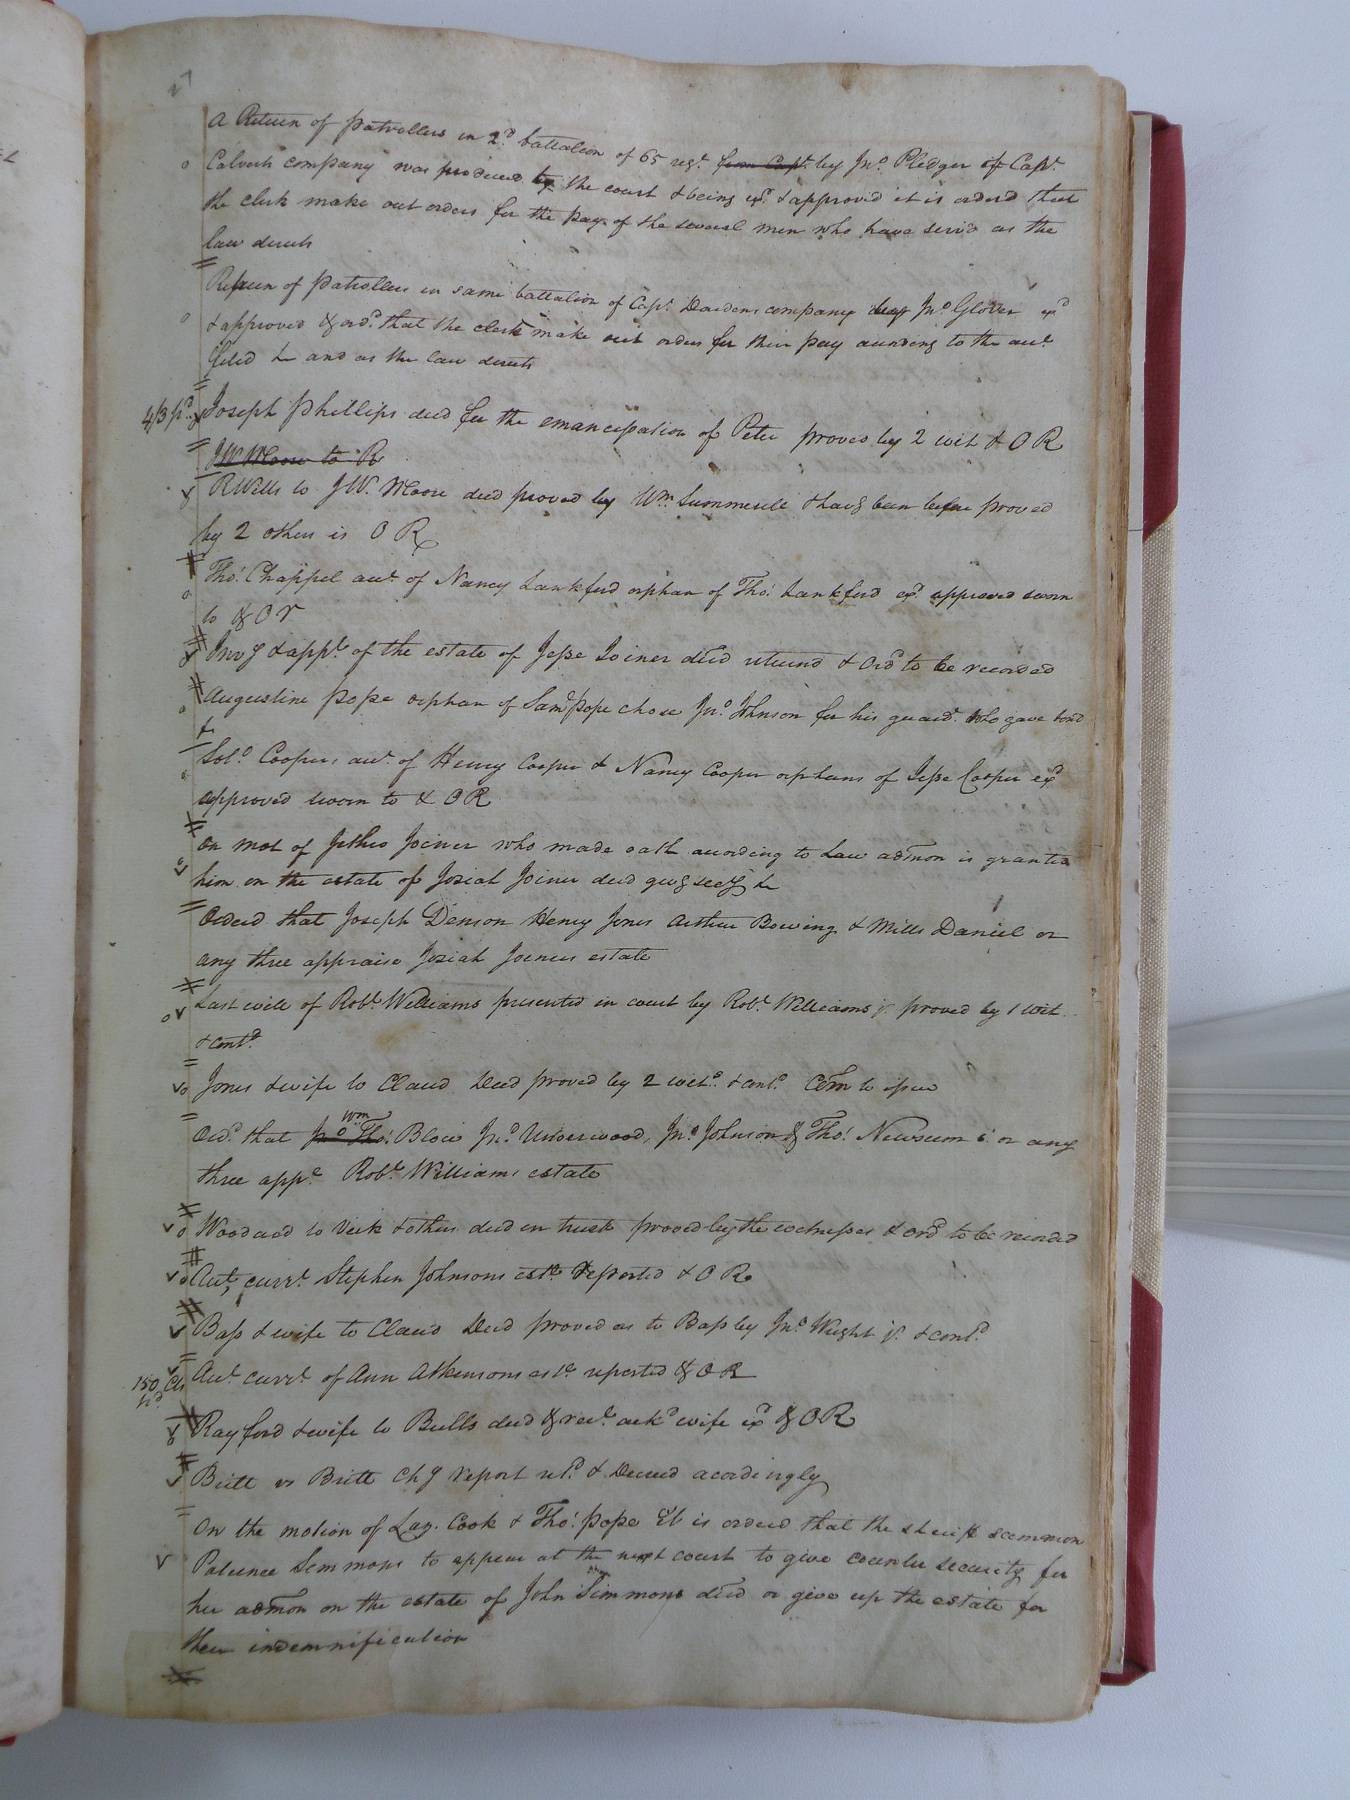 A Return of patrollers in 2d battalion of 65 regt from Capt by Jno Pledger of Capt
Calverts company was produced to the court & being exd & approved it is ordered that
the clerk make out orders for the pay of the several men who have served as the
law directs
Return of patrollers in same battalion of Capt Dardens company by Jno Glover exd
& approved & ord that the clerk make out orders for their pay according to the act
filed &c and as the law directs
4/3 pd Joseph Phillips deed for the emancipation of Peter proved by 2 wit & O R
JW Moore to R
R Wills to J W. Moore deed proved by Wm Summerell & havg been before proved
by 2 others is O R
Thos Chappel acct of Nancy Lankford orphan of Thos Lankford exd approved sworn
to & O R
Invy & appt of the estate of Jesse Joiner decd returnd & Ord to be recorded
Augustine Pope orphan of Saml Pope chose Jno Johnson for his guard. who gave bond
&c
Solo Coopers acct of Henry Cooper & Nancy Cooper orphans of Jesse Cooper exd
approved sworn to & O R
On mot of Jethro Joiner who made oath according to Law admon is granted
him on the estate of Josiah Joiner decd givg secy &c
Orderd that Joseph Denson Henry Jones Arthur Bowing & Mills Daniel or
any three appraise Josiah Joiners estate
Last will of Robt Williams presented in court by Robt Williams jr proved by 1 wit
& contd
Jones & wife to Claud Deed proved by 2 wits & contd Com to issue
Ord that Jno Thos Wm Blow Jno Underwood, Jno Johnson & Thos Newsum or any
three appe Robt Williams estate
Woodard to Vick & others deed in trust proved by the witnesses & ord to be recorded
Act currt Stephen Johnsons este Reported & O R
Bass & wife to Claud Deed proved as to Bass by Jno Wright jr & contd
150 Cts pd Act currt of Ann Atkinsons este reported & O R
Rayford & wife to Bulls deed & rect ackd wife exd & O R
Britt vs Britt Chy report retd & Decreed acordingly
On the motion of Laz. Cook & Thos Pope It is orderd that the sheriff summon
Patience Simmons to appear at the next court to give counter security for
her admon on the estate of John Simmons decd or give up the estate for
their indemnification